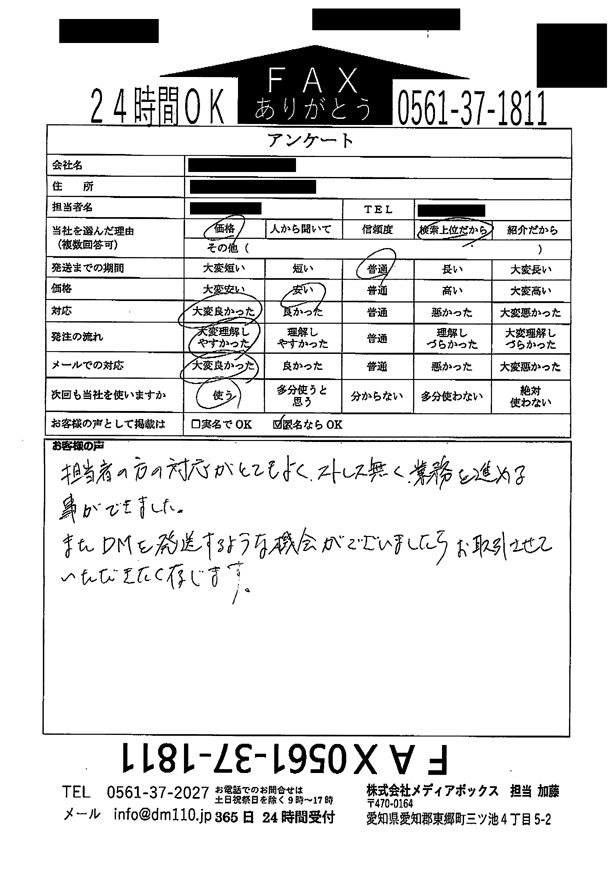 FAX
ありがとう
24時間OK
0561-37-1811
アンケート
会社名
住 所
担当者名 TEL
当社を選んだ理由（複数回答可） 価格 人から聞いて 信頼度 検索上位だから 紹介だから
その他（ ）
発送までの期間 大変短い 短い 普通 長い 大変長い
価格 大変安い 安い 普通 高い 大変高い
対応 大変良かった 良かった 普通 悪かった 大変悪かった
発注の流れ 大変理解しやすかった 理解しやすかった 普通 理解しづらかった 大変理解しづらかった
メールでの対応 大変良かった 良かった 普通 悪かった 大変悪かった
次回も当社を使いますか 使う 多分使うと思う 分からない 多分使わない 絶対使わない
お客様の声として掲載は □実名でOK ☑匿名ならOK
お客様の声
担当者の方の対応がとてもよく、ストレス無く、業務を進める
事ができました。
またDMを発送するような機会がございましたらお取引させて
いただきたく存じます。
FAX0561-37-1811
TEL 0561-37-2027 お電話でのお問合せは土日祝祭日を除く9時～17時
メール info@dm110.jp 365日 24時間受付
株式会社メディアボックス 担当 加藤
〒470-0164
愛知県愛知郡東郷町三ツ池4丁目5-2